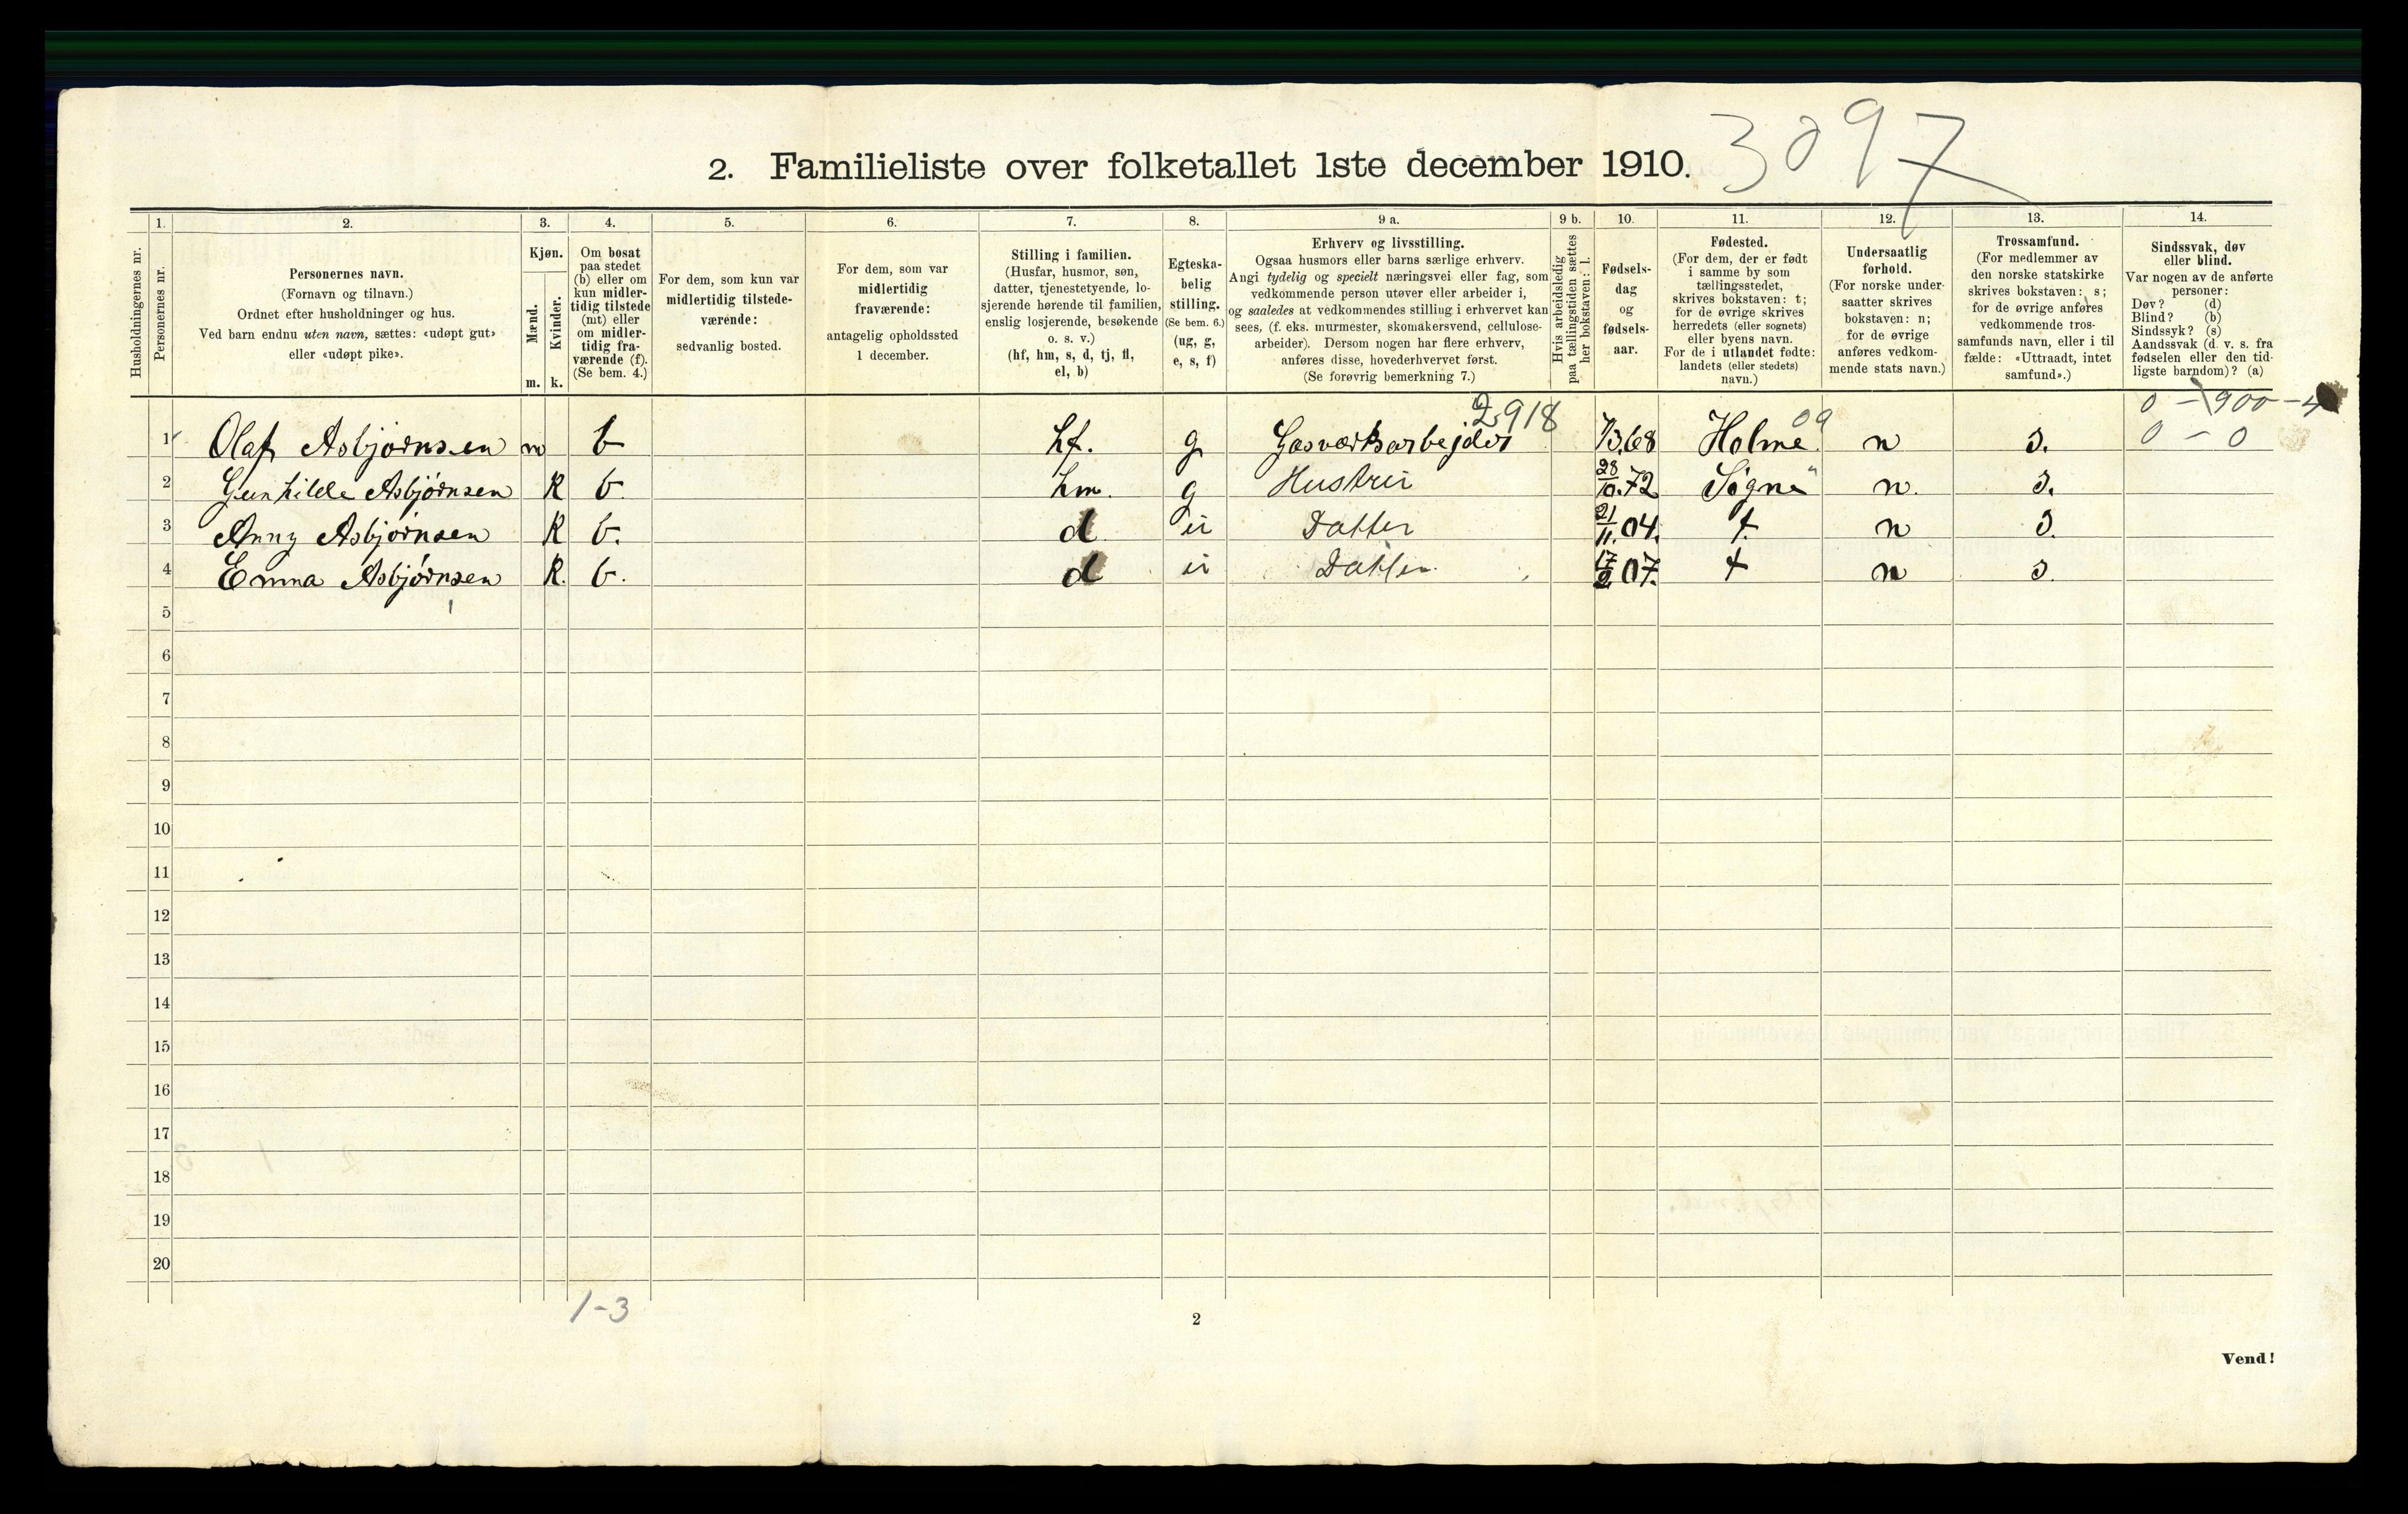 2. Familieliste over folketallet 1ste december 1910. 3097
1. 2. 3. 4. 5. 6. 7. 8. 9 a. 9 b. 10. 11. 12. 13. 14.
Husholdningernes nr.
Personernes nr.
Personernes navn.
(Fornavn og tilnavn.)
Ordnet efter husholdninger og hus.
Ved barn endnu uten navn, sættes: «udøpt gut»
eller «udøpt pike».
Kjøn.
Mænd.
Kvinder.
m. k.
Om bosat
paa stedet
(b) eller om
kun midler-
tidig tilstede
(mt) eller
om midler-
tidig fra-
værende (f).
(Se bem. 4.)
For dem, som kun var
midlertidig tilstede-
værende:
sedvanlig bosted.
For dem, som var
midlertidig
fraværende:
antagelig opholdssted
1 december.
Stilling i familien.
(Husfar, husmor, søn,
datter, tjenestetyende, lo-
sjerende hørende til familien,
enslig losjerende, besøkende
o. s. v.)
(hf, hm, s, d, tj, fl,
el, b)
Egteska-
belig
stilling.
(Se bem. 6.)
(ug, g,
e, s, f)
Erhverv og livsstilling.
Ogsaa husmors eller barns særlige erhverv.
Angi tydelig og specielt næringsvei eller fag, som
vedkommende person utøver eller arbeider i,
og saaledes at vedkommendes stilling i erhvervet kan
sees, (f. eks. murmester, skomakersvend, cellulose-
arbeider). Dersom nogen har flere erhverv,
anføres disse, hovederhvervet først.
(Se forøvrig bemerkning 7.)
Hvis arbeidsledig
paa tællingstiden sættes
her bokstaven: l.
Fødsels-
dag
og
fødsels-
aar.
Fødested.
(For dem, der er født
i samme by som
tællingsstedet,
skrives bokstaven: t;
for de øvrige skrives
herredets (eller sognets)
eller byens navn.
For de i utlandet fødte:
landets (eller stedets)
navn.)
Undersaatlig
forhold.
(For norske under-
saatter skrives
bokstaven: n;
for de øvrige
anføres vedkom-
mende stats navn.)
Trossamfund.
(For medlemmer av
den norske statskirke
skrives bokstaven: s;
for de øvrige anføres
vedkommende tros-
samfunds navn, eller i til
fælde: «Uttraadt, intet
samfund».)
Sindssvak, døv
eller blind.
Var nogen av de anførte
personer:
Døv? (d)
Blind? (b)
Sindssyk? (s)
Aandssvak (d. v. s. fra
fødselen eller den tid-
ligste barndom)? (a)
2918 09 0 - 1900 - 4
1 Olaf Asbjørnsen m b hf. g Gasværksarbejder 7/3.68 Holme n s. 0 - 0
2 Gunhilde Asbjørnsen K b. hm. g Hustru 28/10.72 Søgne n. s.
3 Anny Asbjørnsen K b. d u Datter 21/11.04. t. n s.
4 Emma Asbjørnsen K. b. d u Datter 17/2 07. t n s.
5
6
7
8
9
10
11
12
13
14
15
16
17
18
19
20
1-3
2
Vend!